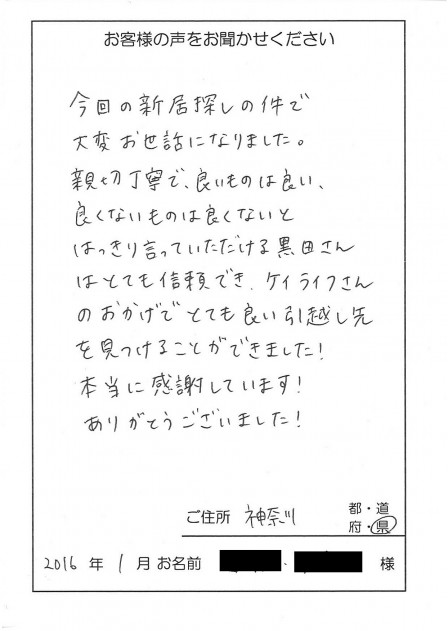 お客様の声をお聞かせください
今回の新居探しの件で
大変お世話になりました。
親切丁寧で、良いものは良い、
良くないものは良くないと
はっきり言っていただける黒田さん
はとても信頼でき、ケイライフさん
のおかげでとても良い引越し先
を見つけることができました!
本当に感謝しています!
ありがとうございました!
ご住所 神奈川 都・道
府・県
2016 年 1 月 お名前 様